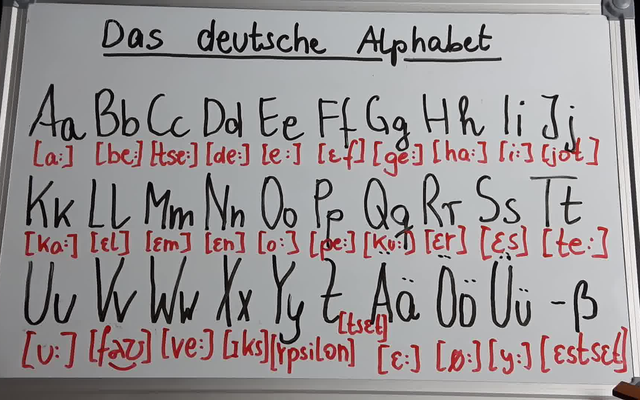 Das deutsche Alphabet
Aa Bb Cc Dd Ee Ff Gg Hh Ii Jj
[a:] [be:] [tse:] [de:] [e:] [ɛf] [ge:] [ha:] [i:] [jɔt]
Kk Ll Mm Nn Oo Pp Qq Rr Ss Tt
[ka:] [ɛl] [ɛm] [ɛn] [o:] [pe:] [ku:] [ɛr] [ɛs] [te:]
Uu Vv Ww Xx Yy Z Ää Öö Üü -ß
[u:] [faʊ] [ve:] [ɪks] [ʏpsilɔn] [tsɛt] [ɛ:] [ø:] [y:] [ɛstsɛt]